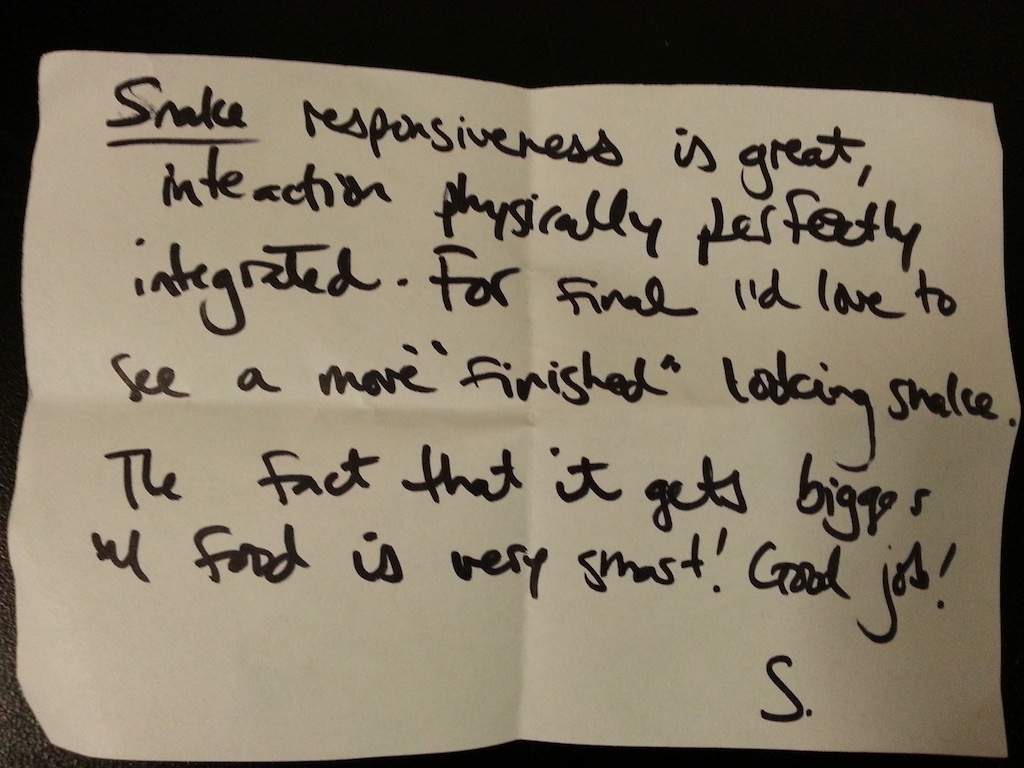 Snake responsiveness is great,
inteaction physically perfectly
integrated. For final I'd love to
see a more "finished" looking snake.
The fact that it gets bigger
w/ food is very smart! Good job!
S.